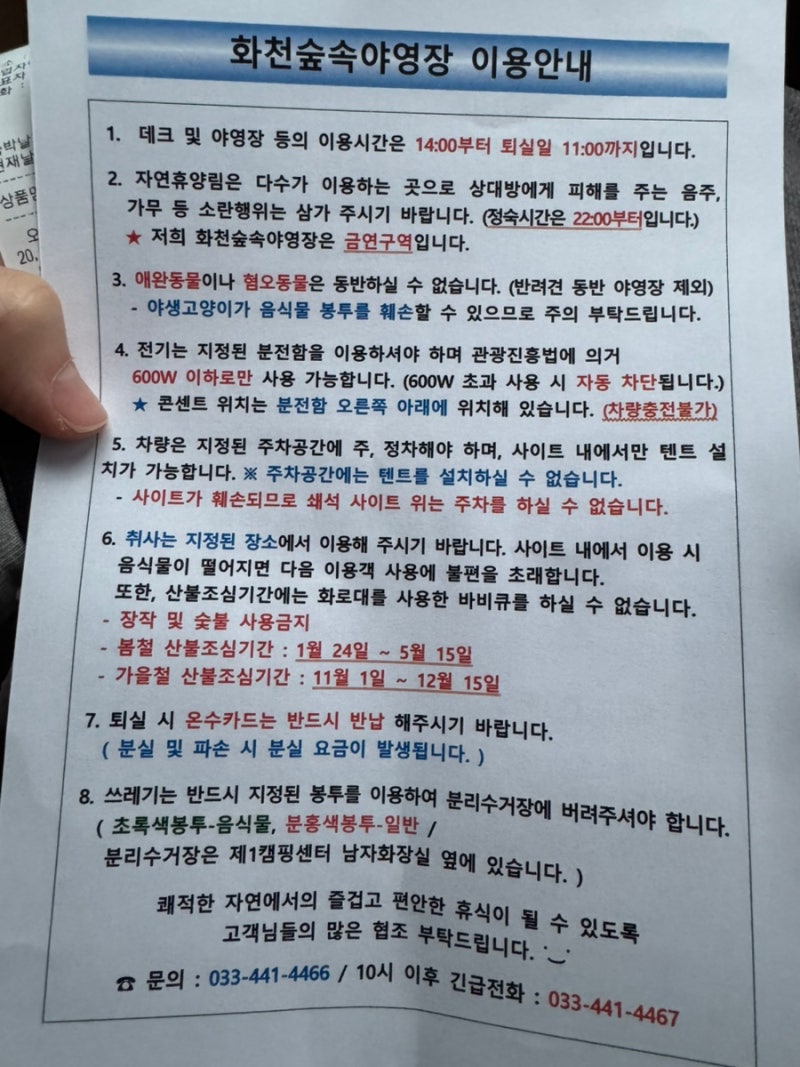 화천숲속야영장 이용안내
1. 데크 및 야영장 등의 이용시간은 14:00부터 퇴실일 11:00까지입니다.
2. 자연휴양림은 다수가 이용하는 곳으로 상대방에게 피해를 주는 음주,
가무 등 소란행위는 삼가 주시기 바랍니다. (정숙시간은 22:00부터입니다.)
★ 저희 화천숲속야영장은 금연구역입니다.
3. 애완동물이나 혐오동물은 동반하실 수 없습니다. (반려견 동반 야영장 제외)
- 야생고양이가 음식물 봉투를 훼손할 수 있으므로 주의 부탁드립니다.
4. 전기는 지정된 분전함을 이용하셔야 하며 관광진흥법에 의거
600W 이하로만 사용 가능합니다. (600W 초과 사용 시 자동 차단됩니다.)
★ 콘센트 위치는 분전함 오른쪽 아래에 위치해 있습니다. (차량충전불가)
5. 차량은 지정된 주차공간에 주, 정차해야 하며, 사이트 내에서만 텐트 설
치가 가능합니다. ※ 주차공간에는 텐트를 설치하실 수 없습니다.
- 사이트가 훼손되므로 쇄석 사이트 위는 주차를 하실 수 없습니다.
6. 취사는 지정된 장소에서 이용해 주시기 바랍니다. 사이트 내에서 이용 시
음식물이 떨어지면 다음 이용객 사용에 불편을 초래합니다.
또한, 산불조심기간에는 화로대를 사용한 바비큐를 하실 수 없습니다.
- 장작 및 숯불 사용금지
- 봄철 산불조심기간 : 1월 24일 ~ 5월 15일
- 가을철 산불조심기간 : 11월 1일 ~ 12월 15일
7. 퇴실 시 온수카드는 반드시 반납 해주시기 바랍니다.
( 분실 및 파손 시 분실 요금이 발생됩니다. )
8. 쓰레기는 반드시 지정된 봉투를 이용하여 분리수거장에 버려주셔야 합니다.
( 초록색봉투-음식물, 분홍색봉투-일반 /
분리수거장은 제1캠핑센터 남자화장실 옆에 있습니다. )
쾌적한 자연에서의 즐겁고 편안한 휴식이 될 수 있도록
고객님들의 많은 협조 부탁드립니다.
☎ 문의 : 033-441-4466 / 10시 이후 긴급전화 : 033-441-4467
상품명
20.